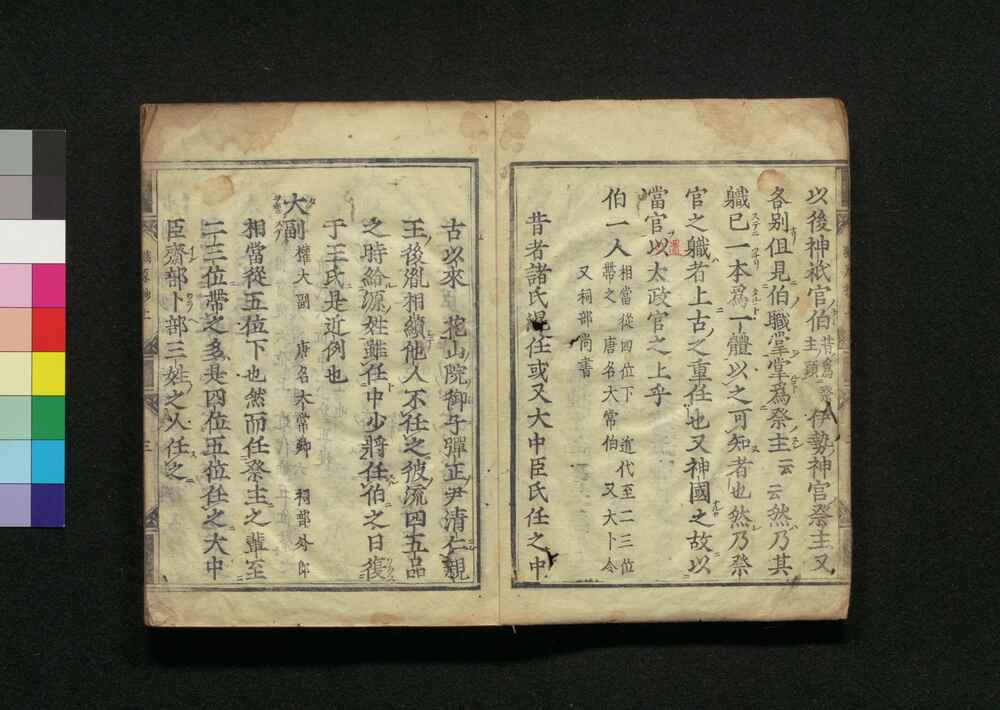 以後神祇官伯昔爲祭主頭伊勢神官祭主又
各别伹見伯職掌掌爲祭主云云然乃其
軄已一本爲一體以之可知者也然乃祭
官之軄者上古之重任也又神國之故以
當官以太政官之上乎
置
伯一人相當從四位下 近代至二三位
幣之 唐名大常伯 又大卜令
又祠部尚書
昔者諸氏混任或又大中臣氏任之中
古以來 花山院御子彈正尹清仁親
王後胤相續他人不任之彼流四五品
之時給源姓雖任中少將任伯之日復
于王氏是近例也
大副權大副 唐名太常卿 祠部外郎
相當從五位下也然而任祭主之輩至
二三位帶之多是四位五位任之大中
臣齋部卜部三姓之人任之
三